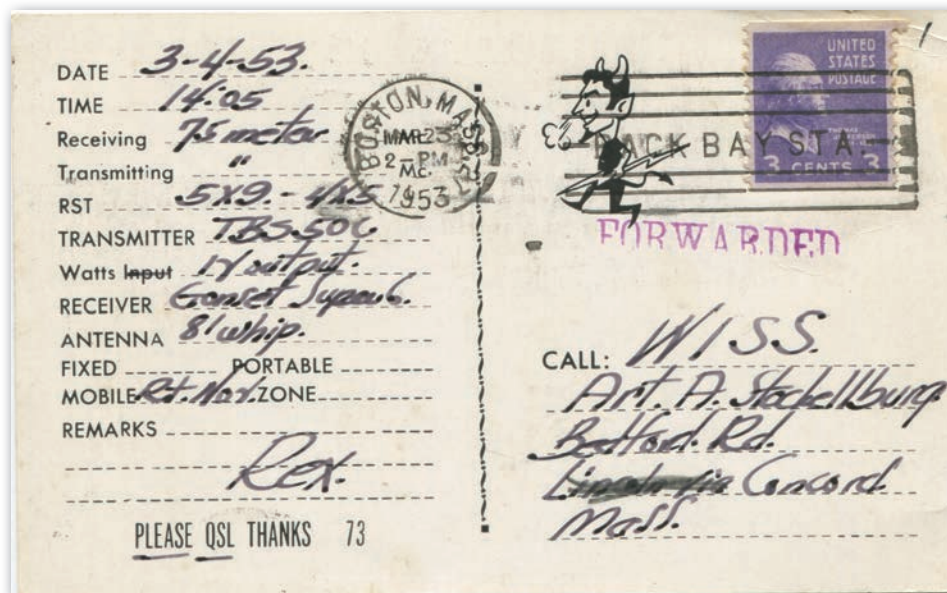 DATE 3-4-53.
TIME 14:05
Receiving 75 meter
Transmitting "
RST 5X9 - 4X5
TRANSMITTER TBS.50C
Watts Input output.
RECEIVER Gonset Super 6.
ANTENNA 8' whip.
FIXED PORTABLE
MOBILE ZONE
REMARKS
Rex.
PLEASE QSL THANKS 73
BOSTON, MASS.
MAR 23
2-PM
1953
BACK BAY STA.
UNITED
STATES
POSTAGE
3 CENTS 3
FORWARDED
CALL: W1SS.
Art. A.
Bedford. Rd.
Lincoln via Concord.
Mass.